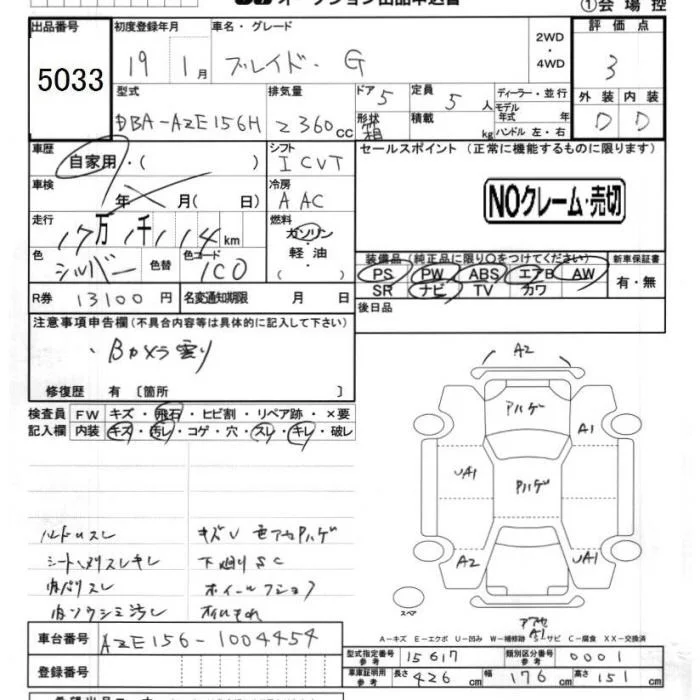 オークション出品申込書
①会場控
出品番号 5033
初度登録年月 19 1月
車名・グレード ブレイド・G
2WD・4WD
評価点 3
型式 DBA-AZE156H
排気量 2360cc
ドア 5
形状 箱
定員 5人
積載 kg
ディーラー・並行
モデル年式 年
ハンドル 左・右
外装 D 内装 D
車歴 自家用・( )
シフト ICVT
セールスポイント (正常に機能するものに限ります)
NOクレーム・売切
車検 年 月( 日)
冷房 AAC
走行 17万1千114km
燃料 ガソリン・軽油・( )
色 シルバー 色替 色コード 1C0
装備品 (純正品に限り○をつけてください)
PS PW ABS エアB AW
SR ナビ TV カワ
新車保証書 有・無
R券 13100円
名変通知期限 月 日
後日品
注意事項申告欄(不具合内容等は具体的に記入して下さい)
・Bカメラ曇り
修復歴 有 〔箇所 〕
検査員記入欄
FW キズ・飛石・ヒビ割・リペア跡・×要
内装 キズ・汚レ・コゲ・穴・スレ・キレ・破レ
ハンドルスレ キズU
シート スレキレ 下廻りSC
内バリスレ
A2
アハゲ
A1
UA1
Pハゲ
A2
UA1
スペア
A1
A－キズ E－エクボ U－凹み W－補修跡 S－サビ C－腐食 XX－交換済
車台番号 AZE156-1004454
登録番号
型式指定番号 参考 15617
類別区分番号 参考 0001
車庫証明用 参考 長さ 426cm 幅 176cm 高さ 151cm